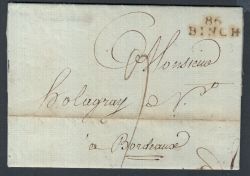 86
BINCH
A Monsieur
Holagray & Ne
à Bordeaux